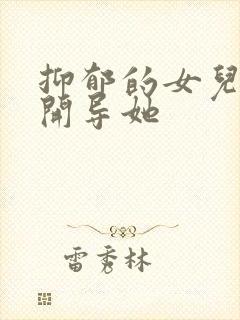 抑郁的女兒
開导她
雷秀林